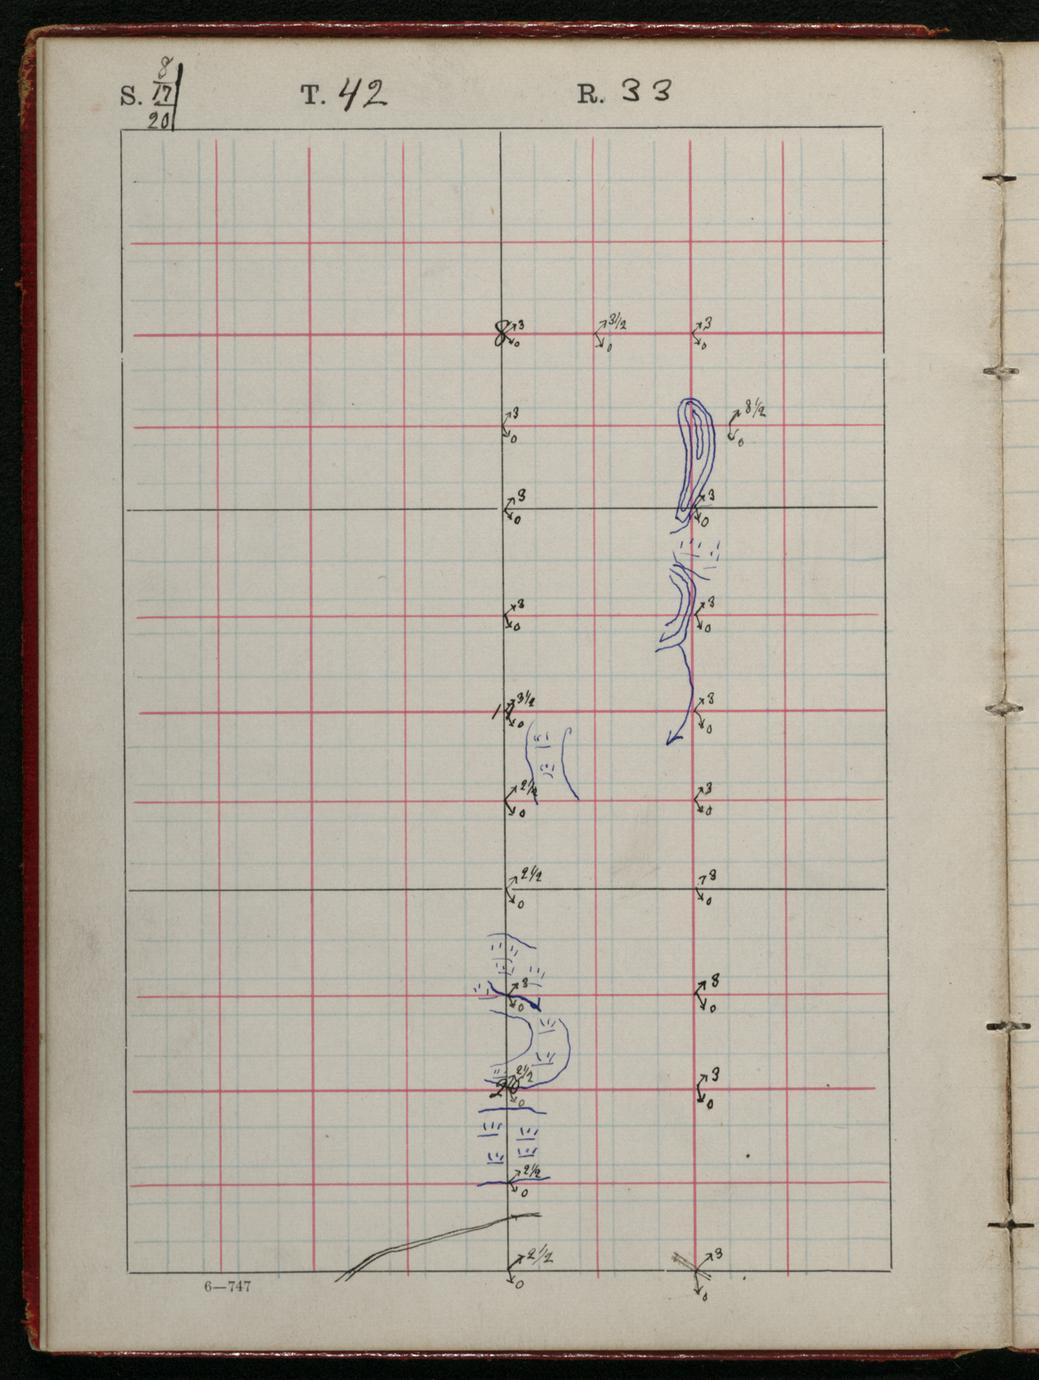 S. 8/17/20 T. 42 R. 33
8 3 0 3 1/2 0 3 0
3 0 8 1/2 0
3 0 3 0
3 0 3 0
17 3 1/2 0 3 0
2 1/2 0 3 0
2 1/2 0 3 0
3 0 3 0
20 2 1/2 0 3 0
2 1/2 0
2 1/2 0 3 0
6—747